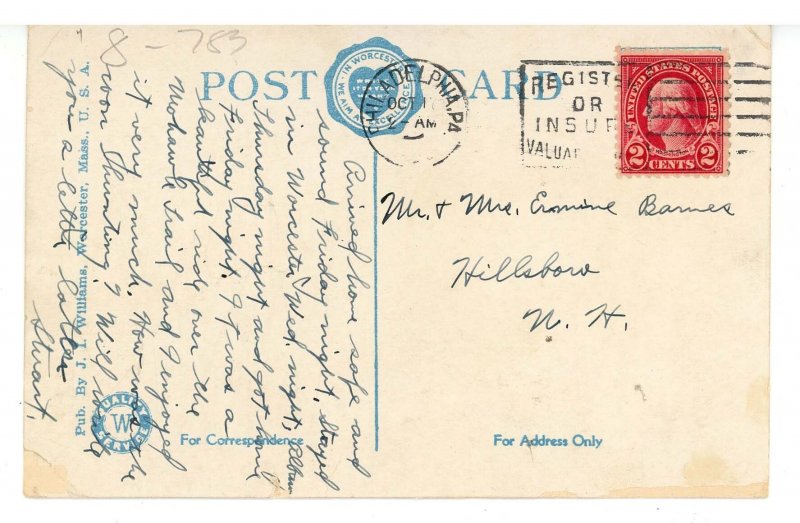 8 - 783
POST CARD
IN WORCESTER
WE AIM AT EXCELLENCE
PHILADELPHIA, PA
OCT 1
2 - AM
REGIST
OR
INSUR
VALUAB
UNITED STATES POSTAGE
2 CENTS 2
Arrived home safe and
sound Friday night. Stayed
in Worcester Wed. night,
Thursday night and got home
Friday night. It was a
beautiful ride over the
Mohawk Trail and I enjoyed
it very much. How was the
coon hunting? Will write
you a letter later
Stuart.
Mr. & Mrs. Ermine Barnes
Hillsboro
N. H.
Pub. By J. I. Williams, Worcester, Mass., U. S. A.
QUALITY
W
For Correspondence
For Address Only